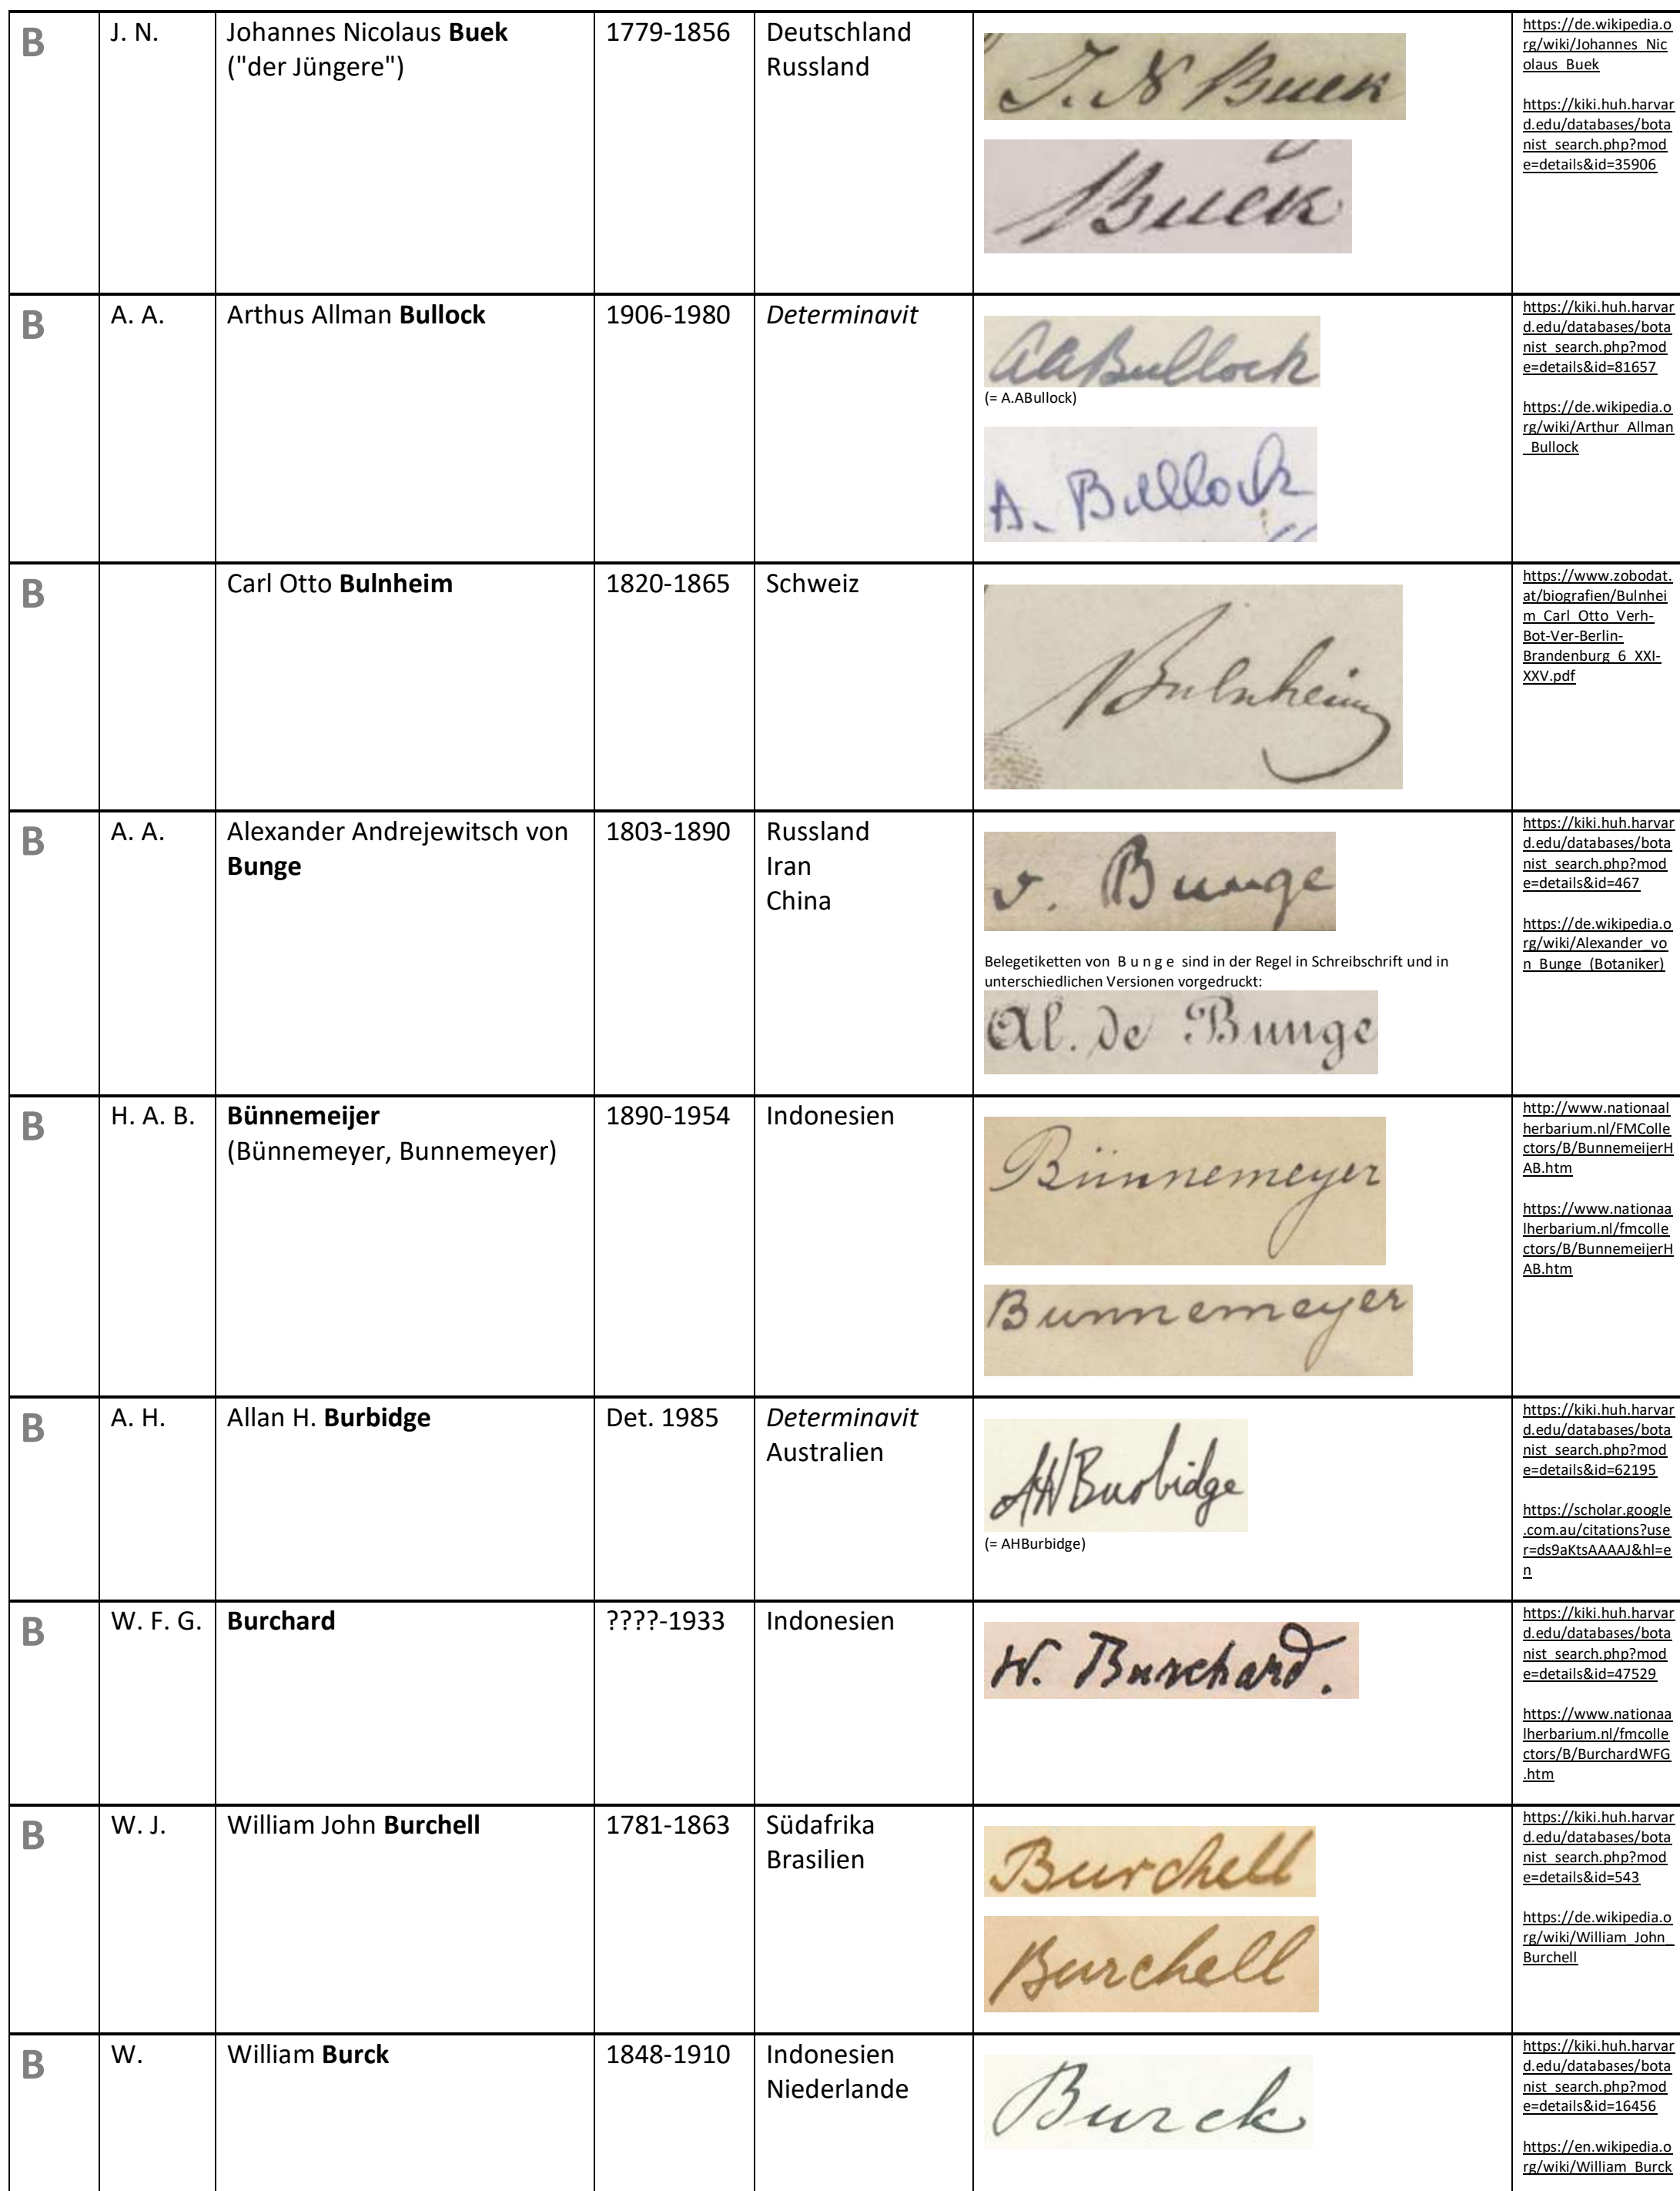 B
J. N.
Johannes Nicolaus Buek
("der Jüngere")
1779-1856
Deutschland
Russland
J. N Buek
Buek
https://de.wikipedia.o
rg/wiki/Johannes_Nic
olaus_Buek
https://kiki.huh.harvar
d.edu/databases/bota
nist_search.php?mod
e=details&id=35906
B
A. A.
Arthus Allman Bullock
1906-1980
Determinavit
AABullock
(= A.ABullock)
A. Bullock
https://kiki.huh.harvar
d.edu/databases/bota
nist_search.php?mod
e=details&id=81657
https://de.wikipedia.o
rg/wiki/Arthur_Allman
_Bullock
B
Carl Otto Bulnheim
1820-1865
Schweiz
Bulnheim
https://www.zobodat.
at/biografien/Bulnhei
m_Carl_Otto_Verh-
Bot-Ver-Berlin-
Brandenburg_6_XXI-
XXV.pdf
B
A. A.
Alexander Andrejewitsch von
Bunge
1803-1890
Russland
Iran
China
v. Bunge
Belegetiketten von B u n g e sind in der Regel in Schreibschrift und in
unterschiedlichen Versionen vorgedruckt:
Al. de Bunge
https://kiki.huh.harvar
d.edu/databases/bota
nist_search.php?mod
e=details&id=467
https://de.wikipedia.o
rg/wiki/Alexander_vo
n_Bunge_(Botaniker)
B
H. A. B.
Bünnemeijer
(Bünnemeyer, Bunnemeyer)
1890-1954
Indonesien
Bünnemeyer
Bunnemeyer
http://www.nationaal
herbarium.nl/FMColle
ctors/B/BunnemeijerH
AB.htm
https://www.nationaa
lherbarium.nl/fmcolle
ctors/B/BunnemeijerH
AB.htm
B
A. H.
Allan H. Burbidge
Det. 1985
Determinavit
Australien
AHBurbidge
(= AHBurbidge)
https://kiki.huh.harvar
d.edu/databases/bota
nist_search.php?mod
e=details&id=62195
https://scholar.google
.com.au/citations?use
r=ds9aKtsAAAAJ&hl=e
n
B
W. F. G.
Burchard
????-1933
Indonesien
W. Burchard.
https://kiki.huh.harvar
d.edu/databases/bota
nist_search.php?mod
e=details&id=47529
https://www.nationaa
lherbarium.nl/fmcolle
ctors/B/BurchardWFG
.htm
B
W. J.
William John Burchell
1781-1863
Südafrika
Brasilien
Burchell
Burchell
https://kiki.huh.harvar
d.edu/databases/bota
nist_search.php?mod
e=details&id=543
https://de.wikipedia.o
rg/wiki/William_John_
Burchell
B
W.
William Burck
1848-1910
Indonesien
Niederlande
Burck
https://kiki.huh.harvar
d.edu/databases/bota
nist_search.php?mod
e=details&id=16456
https://en.wikipedia.o
rg/wiki/William_Burck